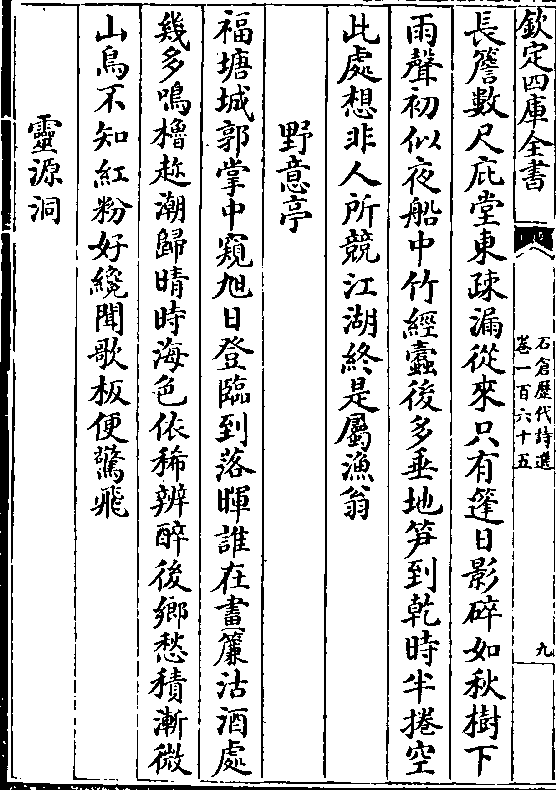 欽定四庫全書
石倉歷代詩選
卷一百六十五
九
長簷數尺庇堂東疎漏從來只有篷日影碎如秋樹下
雨聲初似夜船中竹經蠹後多垂地笋到乾時半捲空
此處想非人所競江湖終是屬漁翁
野意亭
福塘城郭掌中窺旭日登臨到落暉誰在畫簾沽酒處
幾多鳴櫓趂潮歸晴時海色依稀辨醉後鄉愁積漸微
山鳥不知紅粉好纔聞歌板便驚飛
靈源洞